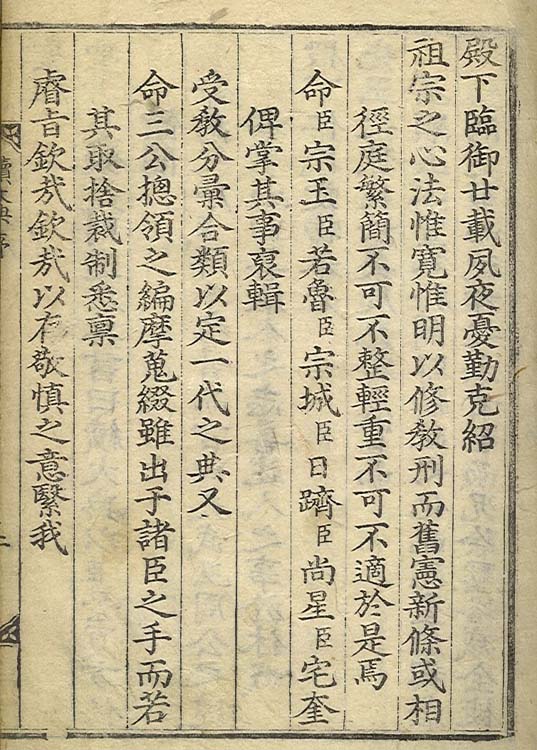 殿下臨御廿載夙夜憂勤克紹
祖宗之心法惟寬惟明以修敎刑而舊憲新條或相
徑庭繁簡不可不整輕重不可不適於是焉
命臣宗玉臣若魯臣宗城臣日躋臣尚星臣宅奎
俾掌其事裒輯
受敎分彙合類以定一代之典又
命三公摠領之編摩蒐綴雖出于諸臣之手而若
其取捨裁制悉禀
睿旨欽㦲欽㦲以存敬慎之意繄我